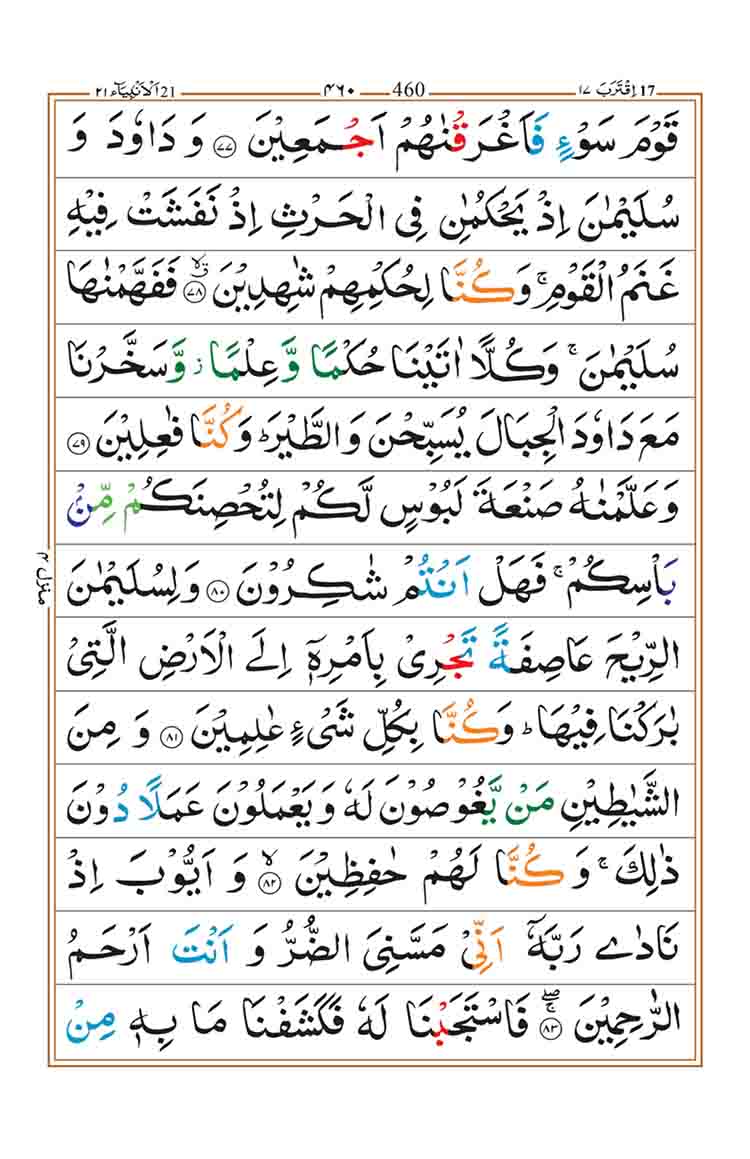 اِقْتَرَبَ ١٧ 17 460 ٤٦٠ اَلْاَنْبِيَآء ٢١ 21
قَوْمَ سَوْءٍ فَاَغْرَقْنٰهُمْ اَجْمَعِيْنَ ٧٧ وَ دَاوٗدَ وَ
سُلَيْمٰنَ اِذْ يَحْكُمٰنِ فِى الْحَرْثِ اِذْ نَفَشَتْ فِيْهِ
غَنَمُ الْقَوْمِ ۚ وَكُنَّا لِحُكْمِهِمْ شٰهِدِيْنَ ٧٨ ۙ فَفَهَّمْنٰهَا
سُلَيْمٰنَ ۚ وَكُلًّا اٰتَيْنَا حُكْمًا وَّعِلْمًا ز وَّسَخَّرْنَا
مَعَ دَاوٗدَ الْجِبَالَ يُسَبِّحْنَ وَالطَّيْرَ ؕ وَكُنَّا فٰعِلِيْنَ ٧٩
وَعَلَّمْنٰهُ صَنْعَةَ لَبُوْسٍ لَّكُمْ لِتُحْصِنَكُمْ مِّنْۢ
بَاْسِكُمْ ۚ فَهَلْ اَنْتُمْ شٰكِرُوْنَ ٨٠ وَلِسُلَيْمٰنَ
الرِّيْحَ عَاصِفَةً تَجْرِىْ بِاَمْرِهٖۤ اِلَى الْاَرْضِ الَّتِىْ
بٰرَكْنَا فِيْهَا ؕ وَكُنَّا بِكُلِّ شَىْءٍ عٰلِمِيْنَ ٨١ وَ مِنَ
الشَّيٰطِيْنِ مَنْ يَّغُوْصُوْنَ لَهٗ وَ يَعْمَلُوْنَ عَمَلًا دُوْنَ
ذٰلِكَ ۚ وَ كُنَّا لَهُمْ حٰفِظِيْنَ ٨٢ ۙ وَ اَيُّوْبَ اِذْ
نَادٰى رَبَّهٗۤ اَنِّىْ مَسَّنِىَ الضُّرُّ وَ اَنْتَ اَرْحَمُ
الرّٰحِمِيْنَ ٨٣ ۖۚ فَاسْتَجَبْنَا لَهٗ فَكَشَفْنَا مَا بِهٖ مِنْ
منزل ٤